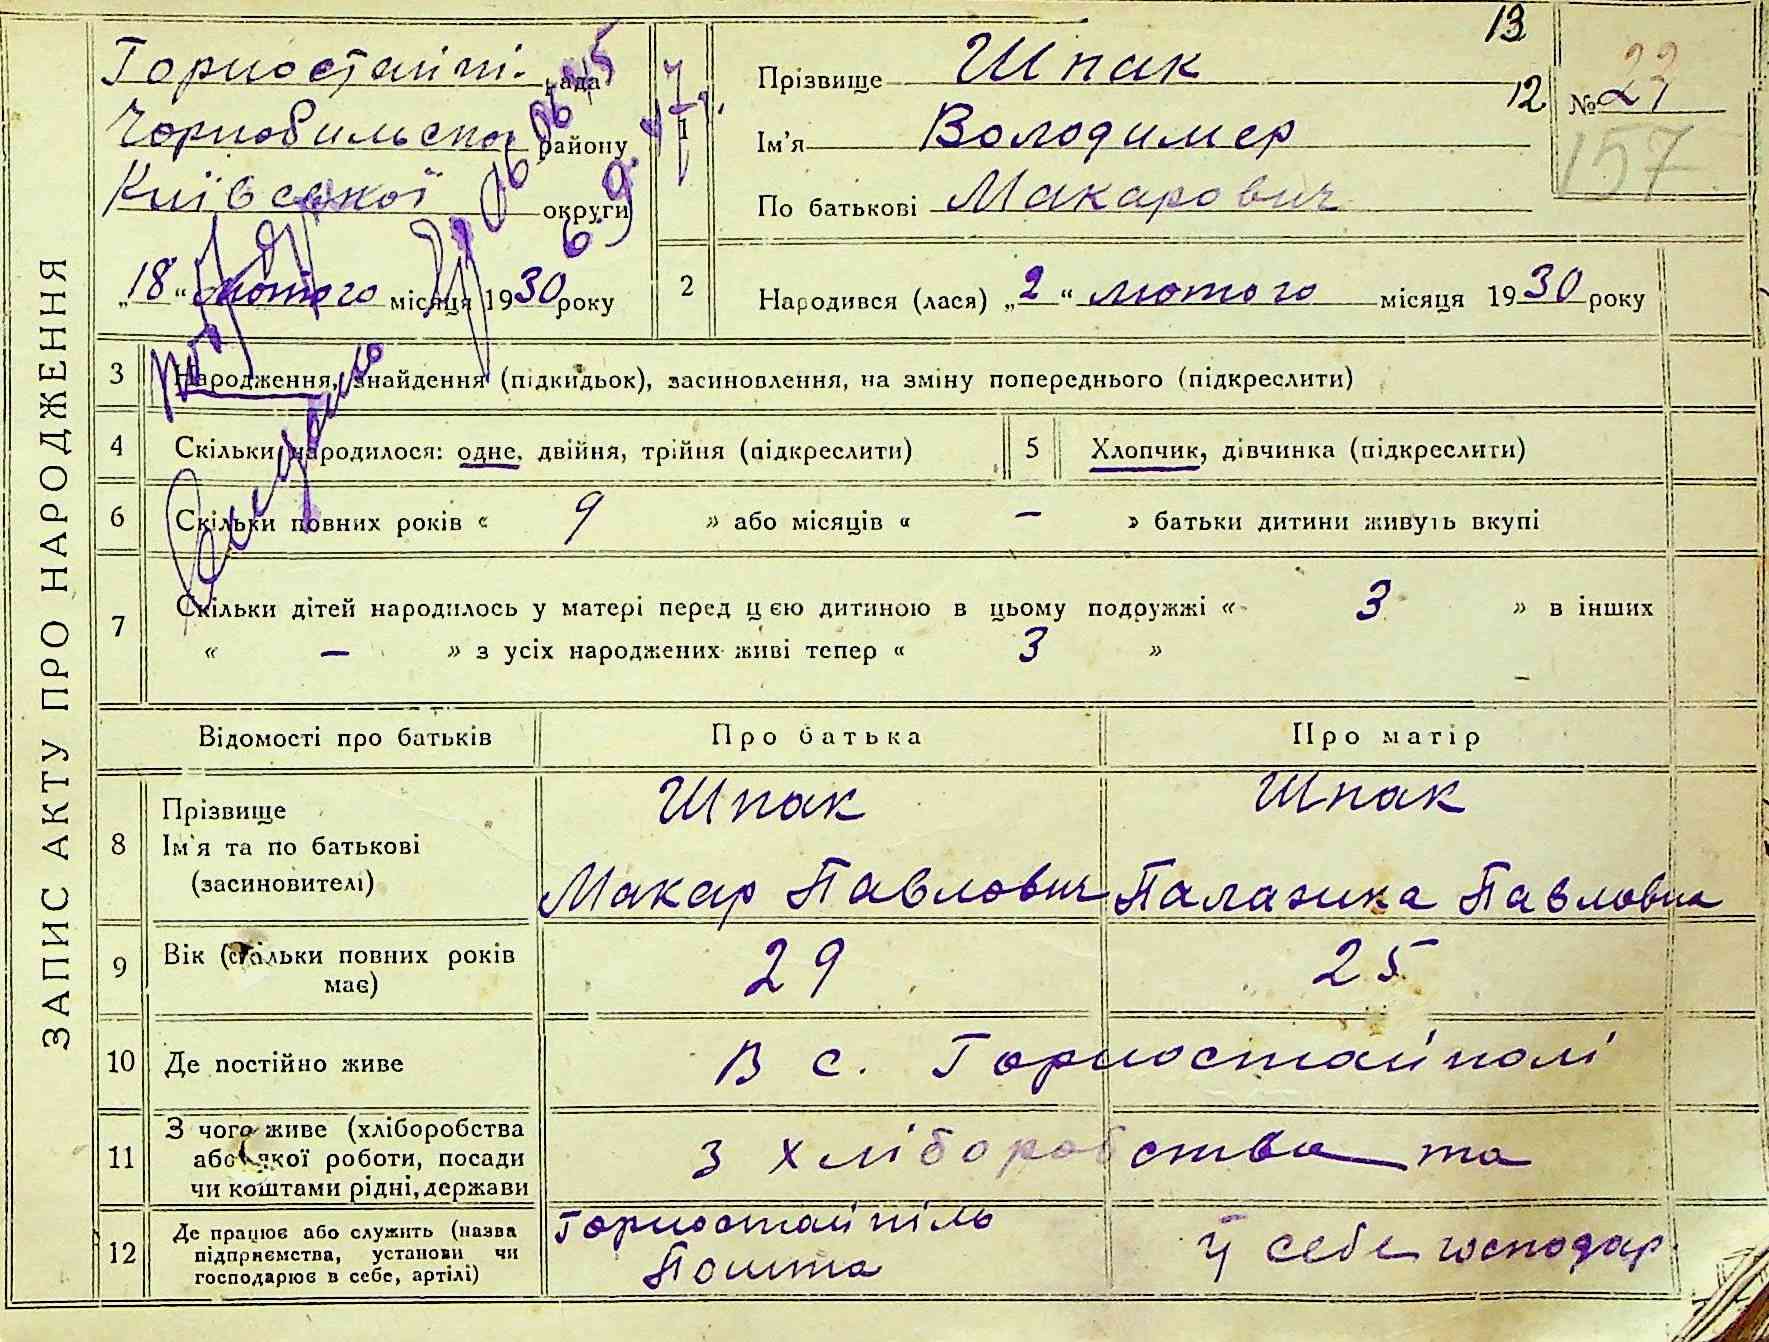 ЗАПИС АКТУ ПРО НАРОДЖЕННЯ
Горностайпі. рада
Чорнобильсько району
Київської округи
„18“ лютого місяця 1930 року
13
12
№ 27
157
1
Прізвище Шпак
Ім'я Володимер
По батькові Макарович
2
Народився (лася) „2“ лютого місяця 1930 року
3 Народження, знайдення (підкидьок), засиновлення, на зміну попереднього (підкреслити)
4 Скільки народилося: одне, двійня, трійня (підкреслити)
5 Хлопчик, дівчинка (підкреслити)
6 Скільки повних років « 9 » або місяців « — » батьки дитини живуть вкупі
7 Скільки дітей народилось у матері перед цією дитиною в цьому подружжі « 3 » в інших
« — » з усіх народжених живі тепер « 3 »
Відомості про батьків Про батька Про матір
8 Прізвище Шпак Шпак
Ім'я та по батькові
(засиновителі) Макар Павлович Палажка Павловна
9 Вік (скільки повних років має) 29 25
10 Де постійно живе В с. Горностайполі
11 З чого живе (хліборобства
або якої роботи, посади з хліборобства та
чи коштами рідні, держави
12 Де працює або служить (назва Горностайпіль
підприємства, установи чи
господарює в себе, артілі) Пошта У себе господар.